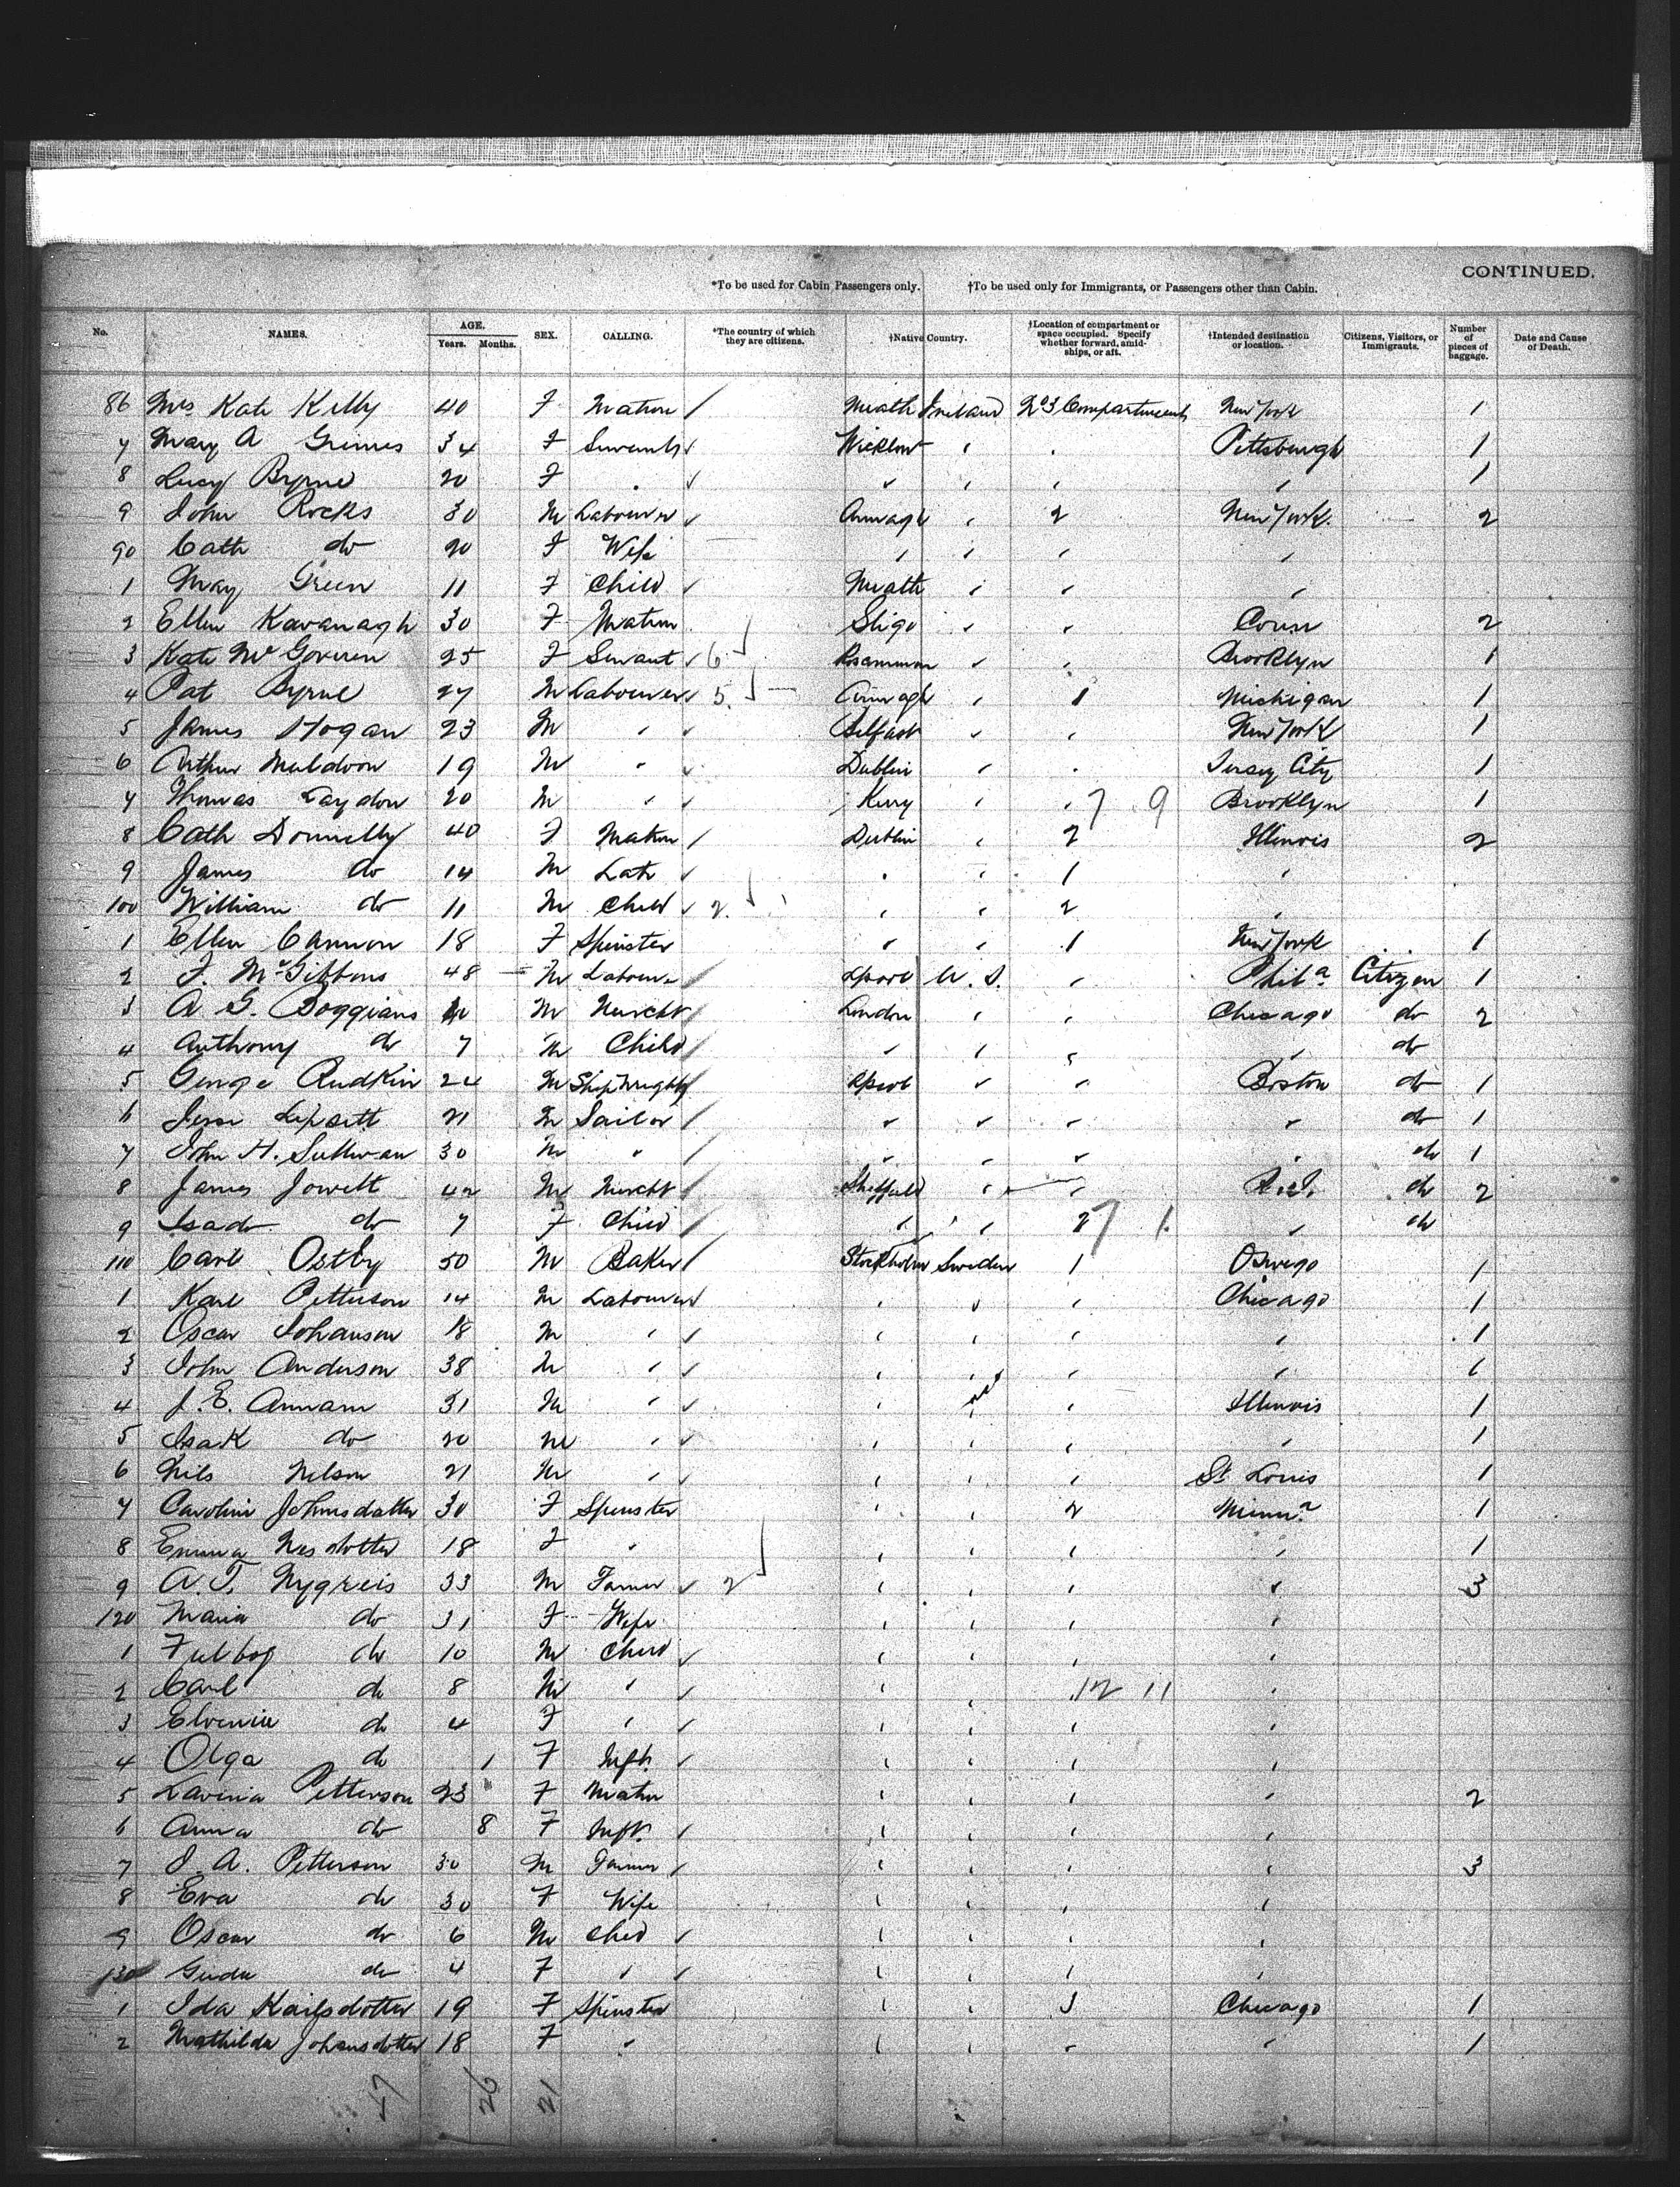 CONTINUED.
*To be used for Cabin Passengers only. †To be used only for Immigrants, or Passengers other than Cabin.
No. NAMES. AGE. Years. Months. SEX. CALLING. *The country of which they are citizens. †Native Country. †Location of compartment or space occupied. Specify whether forward, amidships, or aft. †Intended destination or location. Citizens, Visitors, or Immigrants. Number of pieces of baggage. Date and Cause of Death.
86 Mrs Kate Kelly 40 F Matron / Meath Ireland No 3 Compartment New York 1
7 Mary A Grimes 34 F Servant ✓ Wicklow " " Pittsburgh 1
8 Lucy Byrne 20 F " ✓ " " " " 1
9 John Rocks 30 M Labourer ✓ Armagh " 2 New York. 2
90 Cath do 20 F Wife " " " "
1 May Green 11 F Child ✓ Meath " " "
2 Ellen Kavanagh 30 F Matron Sligo " " Conn 2
3 Kate McGovern 25 F Servant ✓ 6 Roscommon " " Brooklyn 1
4 Pat Byrne 27 M Labourer ✓ 5 Armagh " 1 Michigan 1
5 James Hogan 23 M " ✓ Belfast " " New York 1
6 Arthur Muldoon 19 M " ✓ Dublin " " Jersey City 1
7 Thomas 20 M " ✓ Kerry " " 7 9 Brooklyn 1
8 Cath Donnelly 40 F Matron / Dublin " 2 Illinois 2
9 James do 14 M ✓ " " 1 "
100 William do 11 M Child ✓ 2 " " 2 "
1 Ellen Cannon 18 F Spinster " " 1 New York 1
2 F. McGibbons 48 M Labourer / Lpool U.S. " Phila Citizen 1
3 A. G. Boggiano M Mercht / London " " Chicago do 2
4 Anthony do 7 M Child / " " " " do
5 George Rudkin 24 M Shipwright / Lpool " " Boston do 1
6 Jesse Lipsett 21 M Sailor / " " " " do 1
7 John H. Sullivan 30 M " / " " " " do 1
8 James Jowett 42 M Mercht / Sheffield " " do 2
9 do 7 F Child / " " 2 7 1 " do
110 Carl Ostby 50 M Baker / Stockholm Sweden 1 Oswego 1
1 Karl Petterson 14 M Labourer ✓ " " " Chicago 1
2 Oscar Johanson 18 M " ✓ " " " " 1
3 John Anderson 38 M " ✓ " " " " 1
4 J. E. Annam 31 M " ✓ " " " Illinois 1
5 Isak do 20 M " ✓ " " " " 1
6 Nils Nelson 21 M " ✓ " " " St Louis 1
7 Carolin Johnsdatter 30 F Spinster " " 2 Minna 1
8 Emma 18 F " " " " " 1
9 A. T. Nygreis 33 M Farmer ✓ 2 " " " " 3
120 Maria do 31 F Wife " " " "
1 do 10 M Child ✓ " " " "
2 Carl do 8 M " ✓ " " " 12 11 "
3 do 4 F " ✓ " " " "
4 Olga do 1 F Inft. ✓ " " " "
5 Lavinia Petterson 23 F Matron " " " " 2
6 Anna do 8 F Inft. ✓ " " " "
7 J. A. Petterson 30 M Farmer ✓ " " " " 3
8 Eva do 30 F Wife " " " "
9 Oscar do 6 M Child ✓ " " " "
130 do 4 F " ✓ " " " "
1 Ida 19 F Spinster " " Chicago 1
2 Mathilda Johansdotter 18 F " " " " " 1
47 26 21